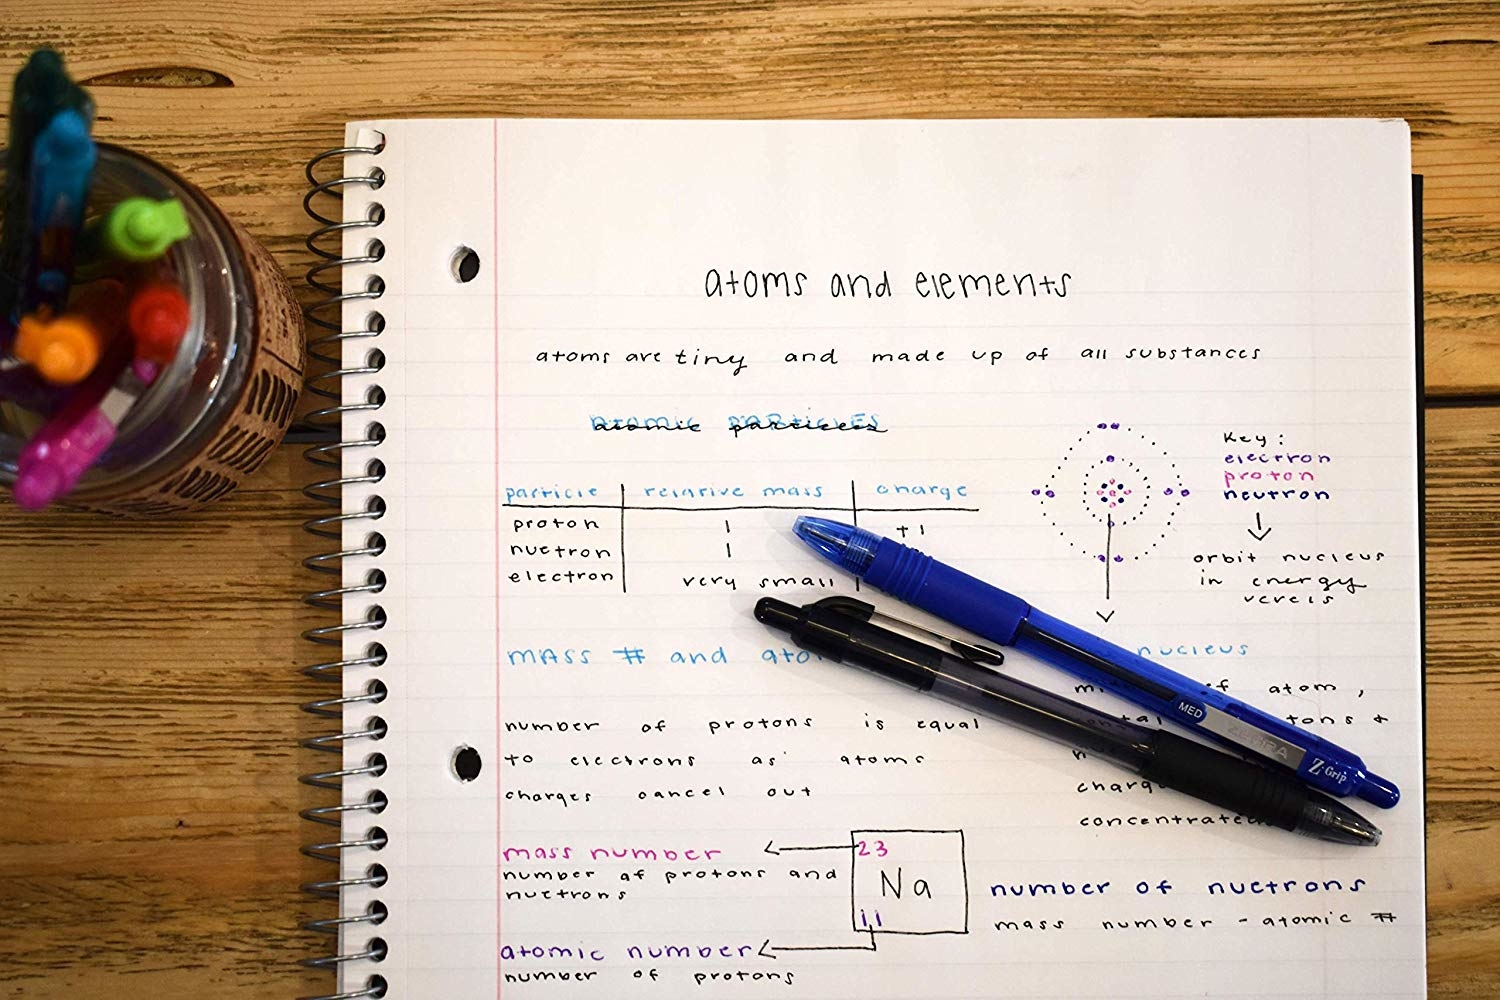 atoms and elements
atoms are tiny and made up of all substances
atomic particles
particle relative mass charge
proton 1 +1
nuetron 1
electron very small
Key:
electron
proton
neutron
orbit nucleus
in energy
verels
mass # and
nucleus
of atom,
number of protons is equal
to electrons as atoms
charges cancel out
concentrated
mass number
number of protons and
nuetrons
23
Na
11
atomic number
number of protons
number of nuetrons
mass number - atomic #
MED
ZEBRA
Z-Grip